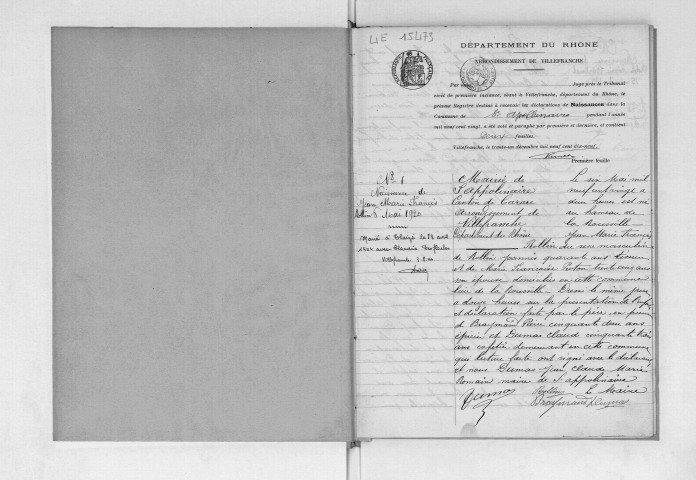 4E 15479
DÉPARTEMENT DU RHONE
ARRONDISSEMENT DE VILLEFRANCHE
Par Juge près le Tribunal
civil de première instance, séant à Villefranche, département du Rhône, le
présent Registre destiné à recevoir les déclarations de Naissances dans la
Commune de St Apollinaire pendant l'année
mil neuf cent vingt, a été coté et paraphé par première et dernière, et contient
deux feuilles
Villefranche, le trente-un décembre mil neuf cent dix-neuf.
Première feuille
No 1
Naissance de
Jean Marie François
Rollin 6 Mai 1920
Marié à le 24 avril
1943 avec Claudia
Villefranche
Mairie de
St Appolinaire
Canton de Tarare
Arrondissement de
Villefranche
Département du Rhône
Le six Mai mil
neuf cent vingt à
deux heures est né
au hameau de
la
Jean Marie François
Rollin du sexe masculin
de Rollin Joannès quarante ans
et de Marie Françoise trente cinq ans
son épouse domiciliés en cette commune
lieu de la Dressé le même jour
à douze heures sur la présentation de l'enfant
et déclaration faite par le père en présence
de Pierre cinquante deux ans
épicier et Dumas Claude cinquante
ans cafetier demeurant en cette commune
qui lecture faite ont signé avec le déclarant
et nous Dumas Jean Claude Marie
Romain maire de St Appolinaire
Dumas Rollin Le Maire
Dumas